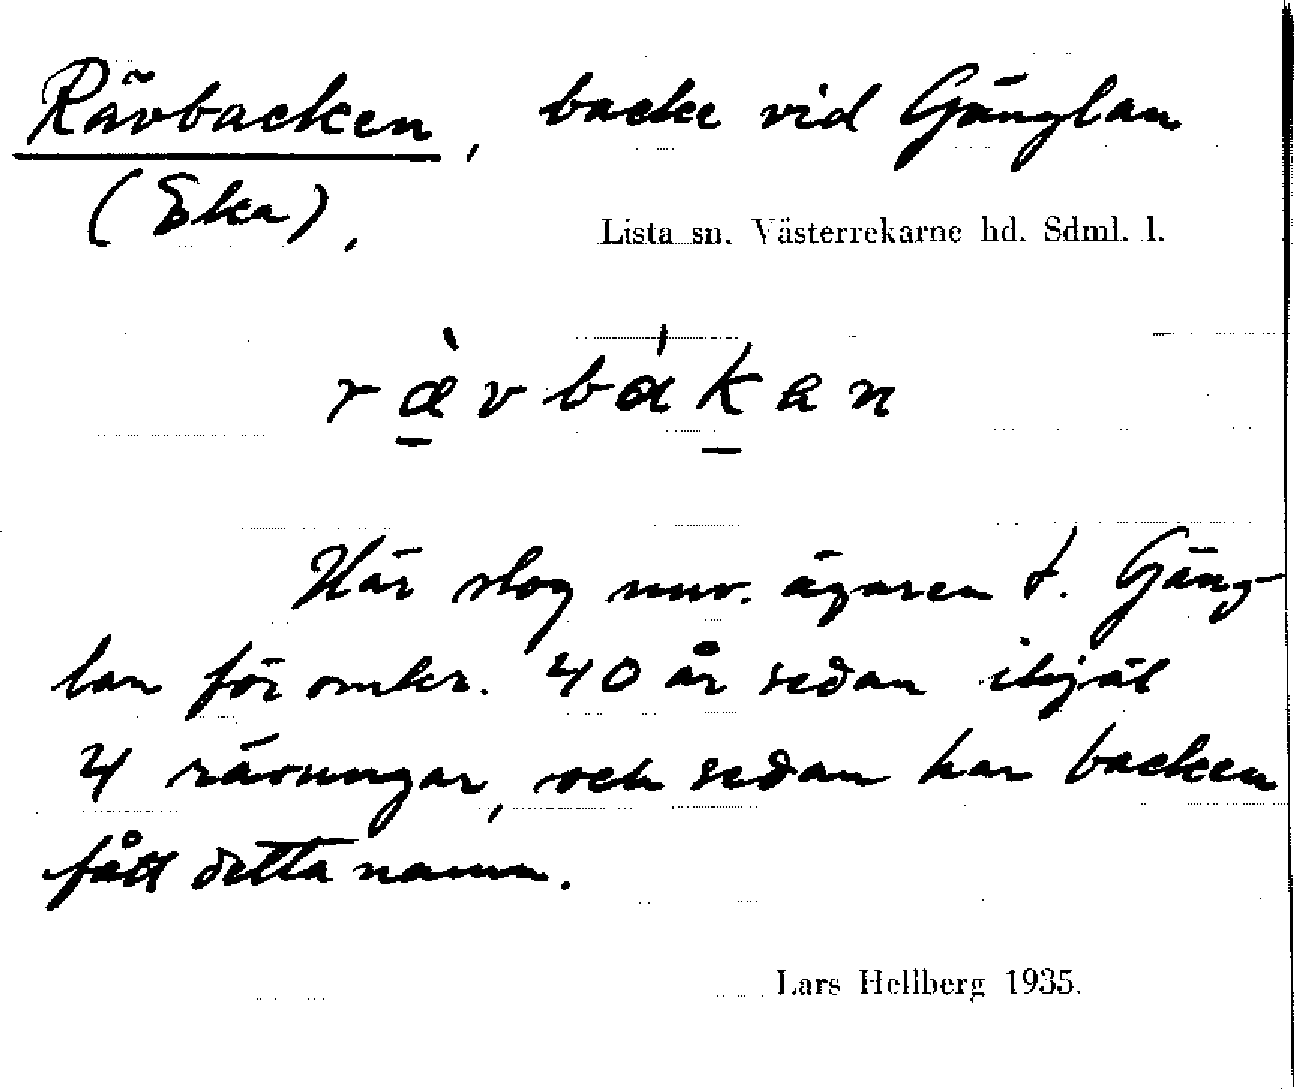 Rävbacken, backe vid Gänglan
(Eka),
Lista sn. Västerrekarne hd. Sdml. l.
ræ̀vbákan
Här slog nuv. ägaren t. Gäng-
lan för omkr. 40 år sedan ihjäl
4 rävungar, och sedan har backen
fått detta namn.
Lars Hellberg 1935.